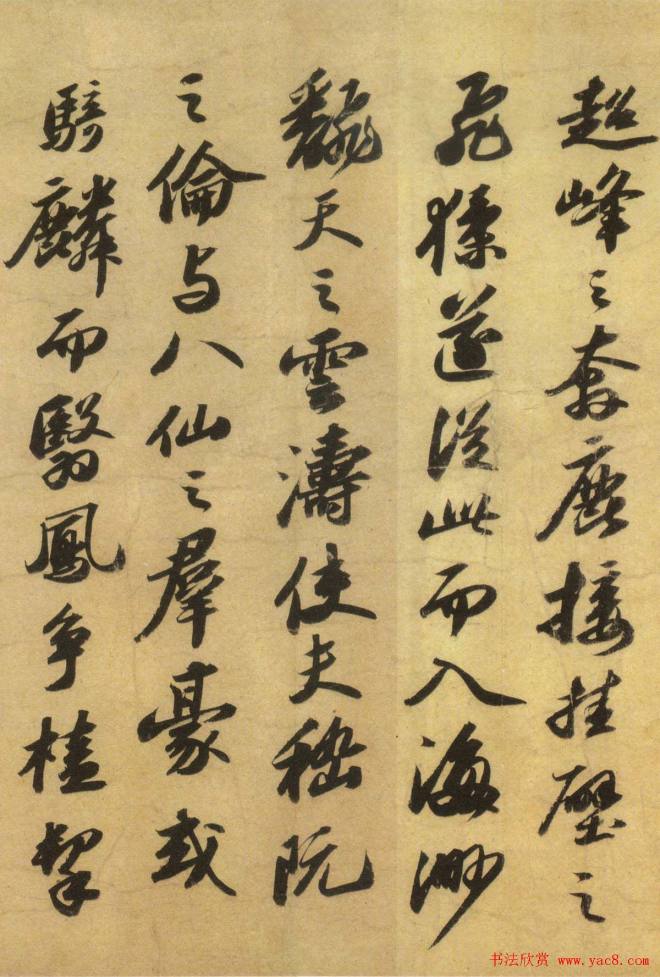 超峰之奔鹿接挂壁之
飛猱遂從此而入海渺
翻天之雲濤使夫嵇阮
之倫与八仙之羣豪或
騎麟而翳鳳争榼挈
书法欣赏 www.yac8.com